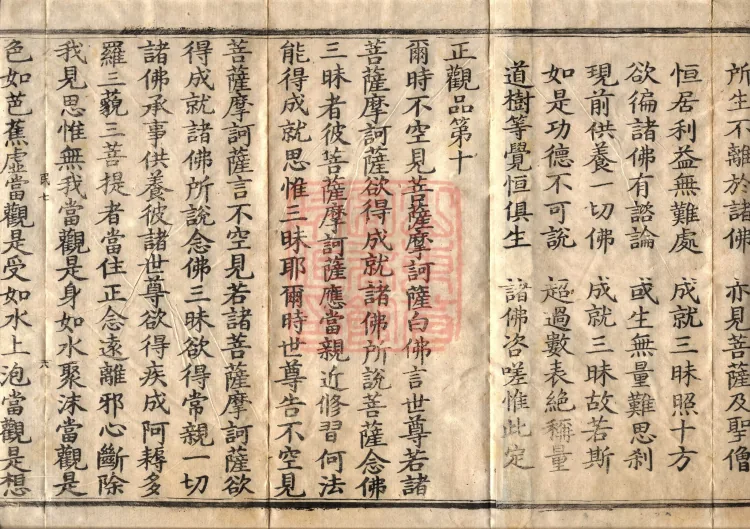 所生不離於諸佛　亦見菩薩及聖僧
恒居利益無難處　成就三昧照十方
欲徧諸佛有諮論　或生無量難思刹
現前供養一切佛　成就三昧故若斯
如是功德不可說　超過數表絶稱量
道樹等覺恒俱生　諸佛咨嗟惟此定
正觀品第十
爾時不空見菩薩摩訶薩白佛言世尊若諸
菩薩摩訶薩欲得成就諸佛所說菩薩念佛
三昧者彼菩薩摩訶薩應當親近修習何法
能得成就思惟三昧耶爾時世尊告不空見
菩薩摩訶薩言不空見若諸菩薩摩訶薩欲
得成就諸佛所說念佛三昧欲得常親一切
諸佛承事供養彼諸世尊欲得疾成阿耨多
羅三藐三菩提者當住正念遠離邪心斷除
我見思惟無我當觀是身如水聚沫當觀是
色如芭蕉虛當觀是受如水上泡當觀是想